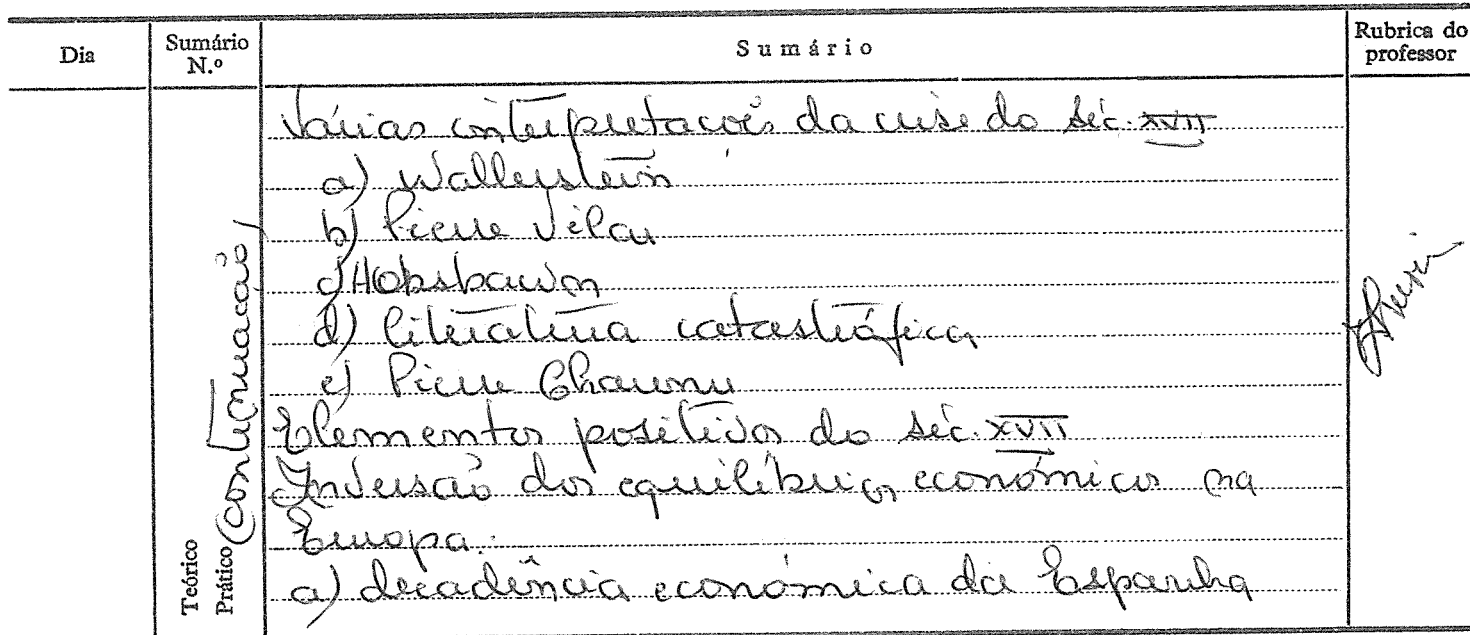 Dia
Sumário N.º
Sumário
Rubrica do professor
Várias interpretações da crise do séc. XVII
a) Wallerstein
b) Pierre Vilar
c) Hobsbawm
d) Literatura catastrófica
e) Pierre Chaunu
Elementos positivos do séc. XVII
Inversão dos equilíbrios económicos na
Europa.
a) decadência económica da Espanha
Teórico
Prático (continuação)